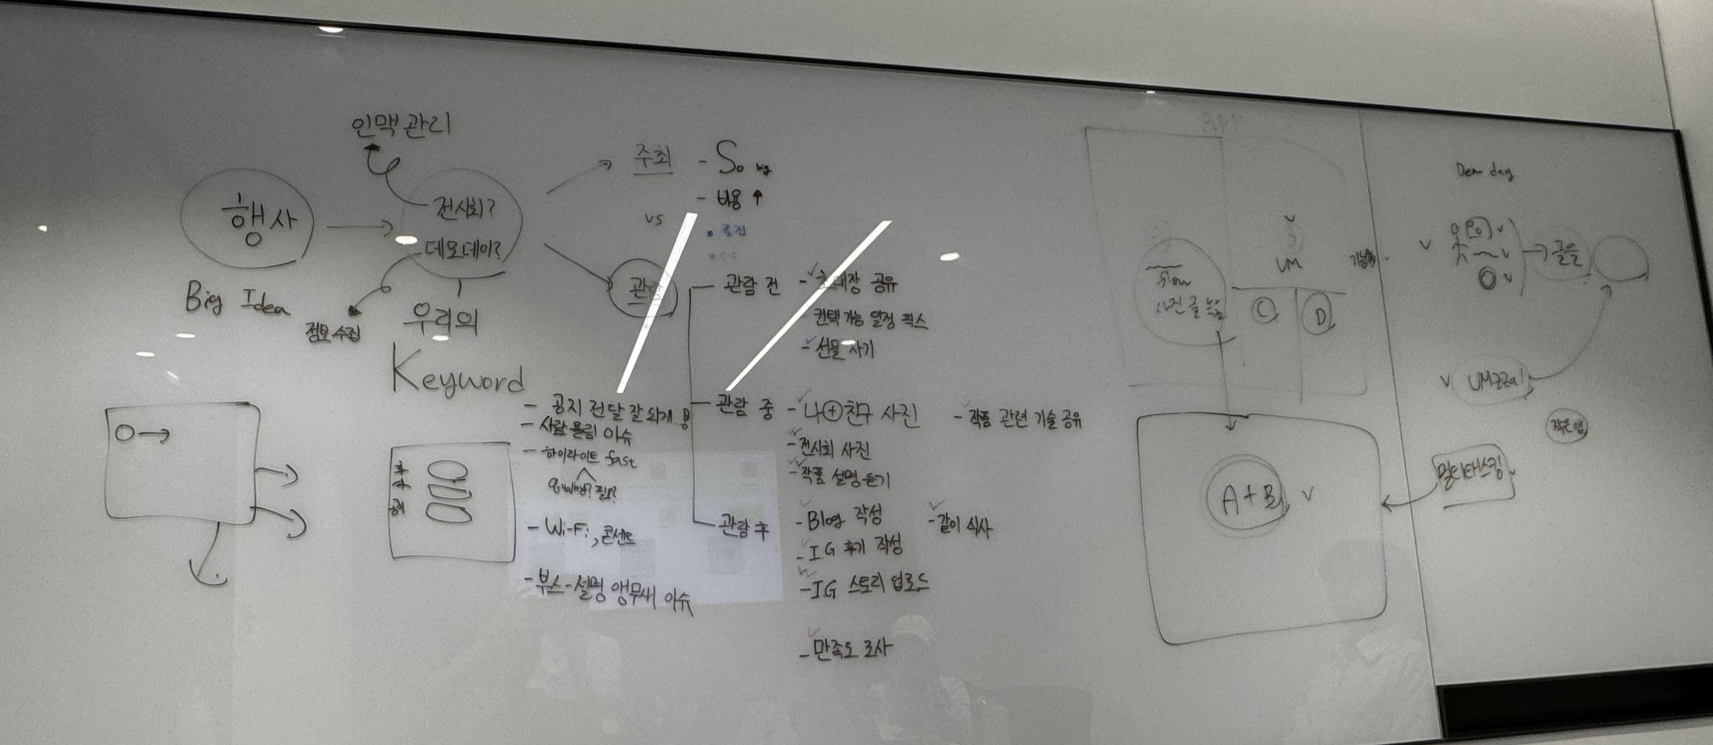 인맥관리
행사
Big Idea
전시회?
데모데이?
정보수집
우리의
Keyword
주최
- So big
- 비용 ↑
vs
관람
관람 전
- 초대장 공유
- 컨택 가능 일정 픽스
- 선물 사기
관람 중
- 나+친구 사진
- 작품 관련 기술 공유
- 전시회 사진
- 작품 설명 듣기
관람 후
- Blog 작성
- 같이 식사
- IG 후기 작성
- IG 스토리 업로드
- 만족도 조사
- 공지 전달 잘 되게
- 사람 몰림 이슈
- 하이라이트 fast
- Wi-Fi, 콘센트
- 부스-설명 앵무새 이슈
APP
UM
C
D
A+B
Demo day
멀티태스킹
작은 앱